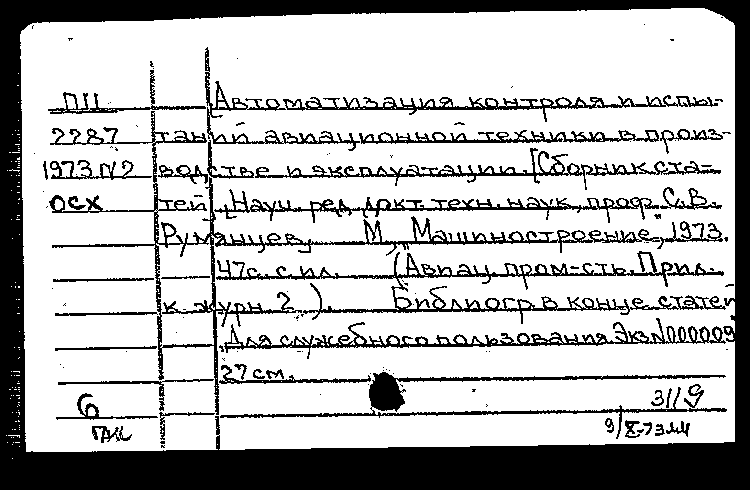 ПII [Автоматизация контроля и испы-
2287 таний авиационной техники в произ-
1973 N2 водстве и эксплуатации. [Сборник ста-
ОСХ тей. Науч. ред. докт. техн. наук, проф. С.В.
Румянцев. М., "Машиностроение", 1973.
47с. с ил. (Авиац. пром-сть. Прил.
к журн. 2). Библиогр. в конце статей
Для служебного пользования. Экз. N000009
27 см.
6 3119
9/X-73